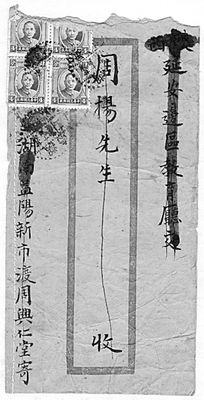 延安邊區教育廳交
周楊先生 收
湖 益陽新市渡周興仁堂寄